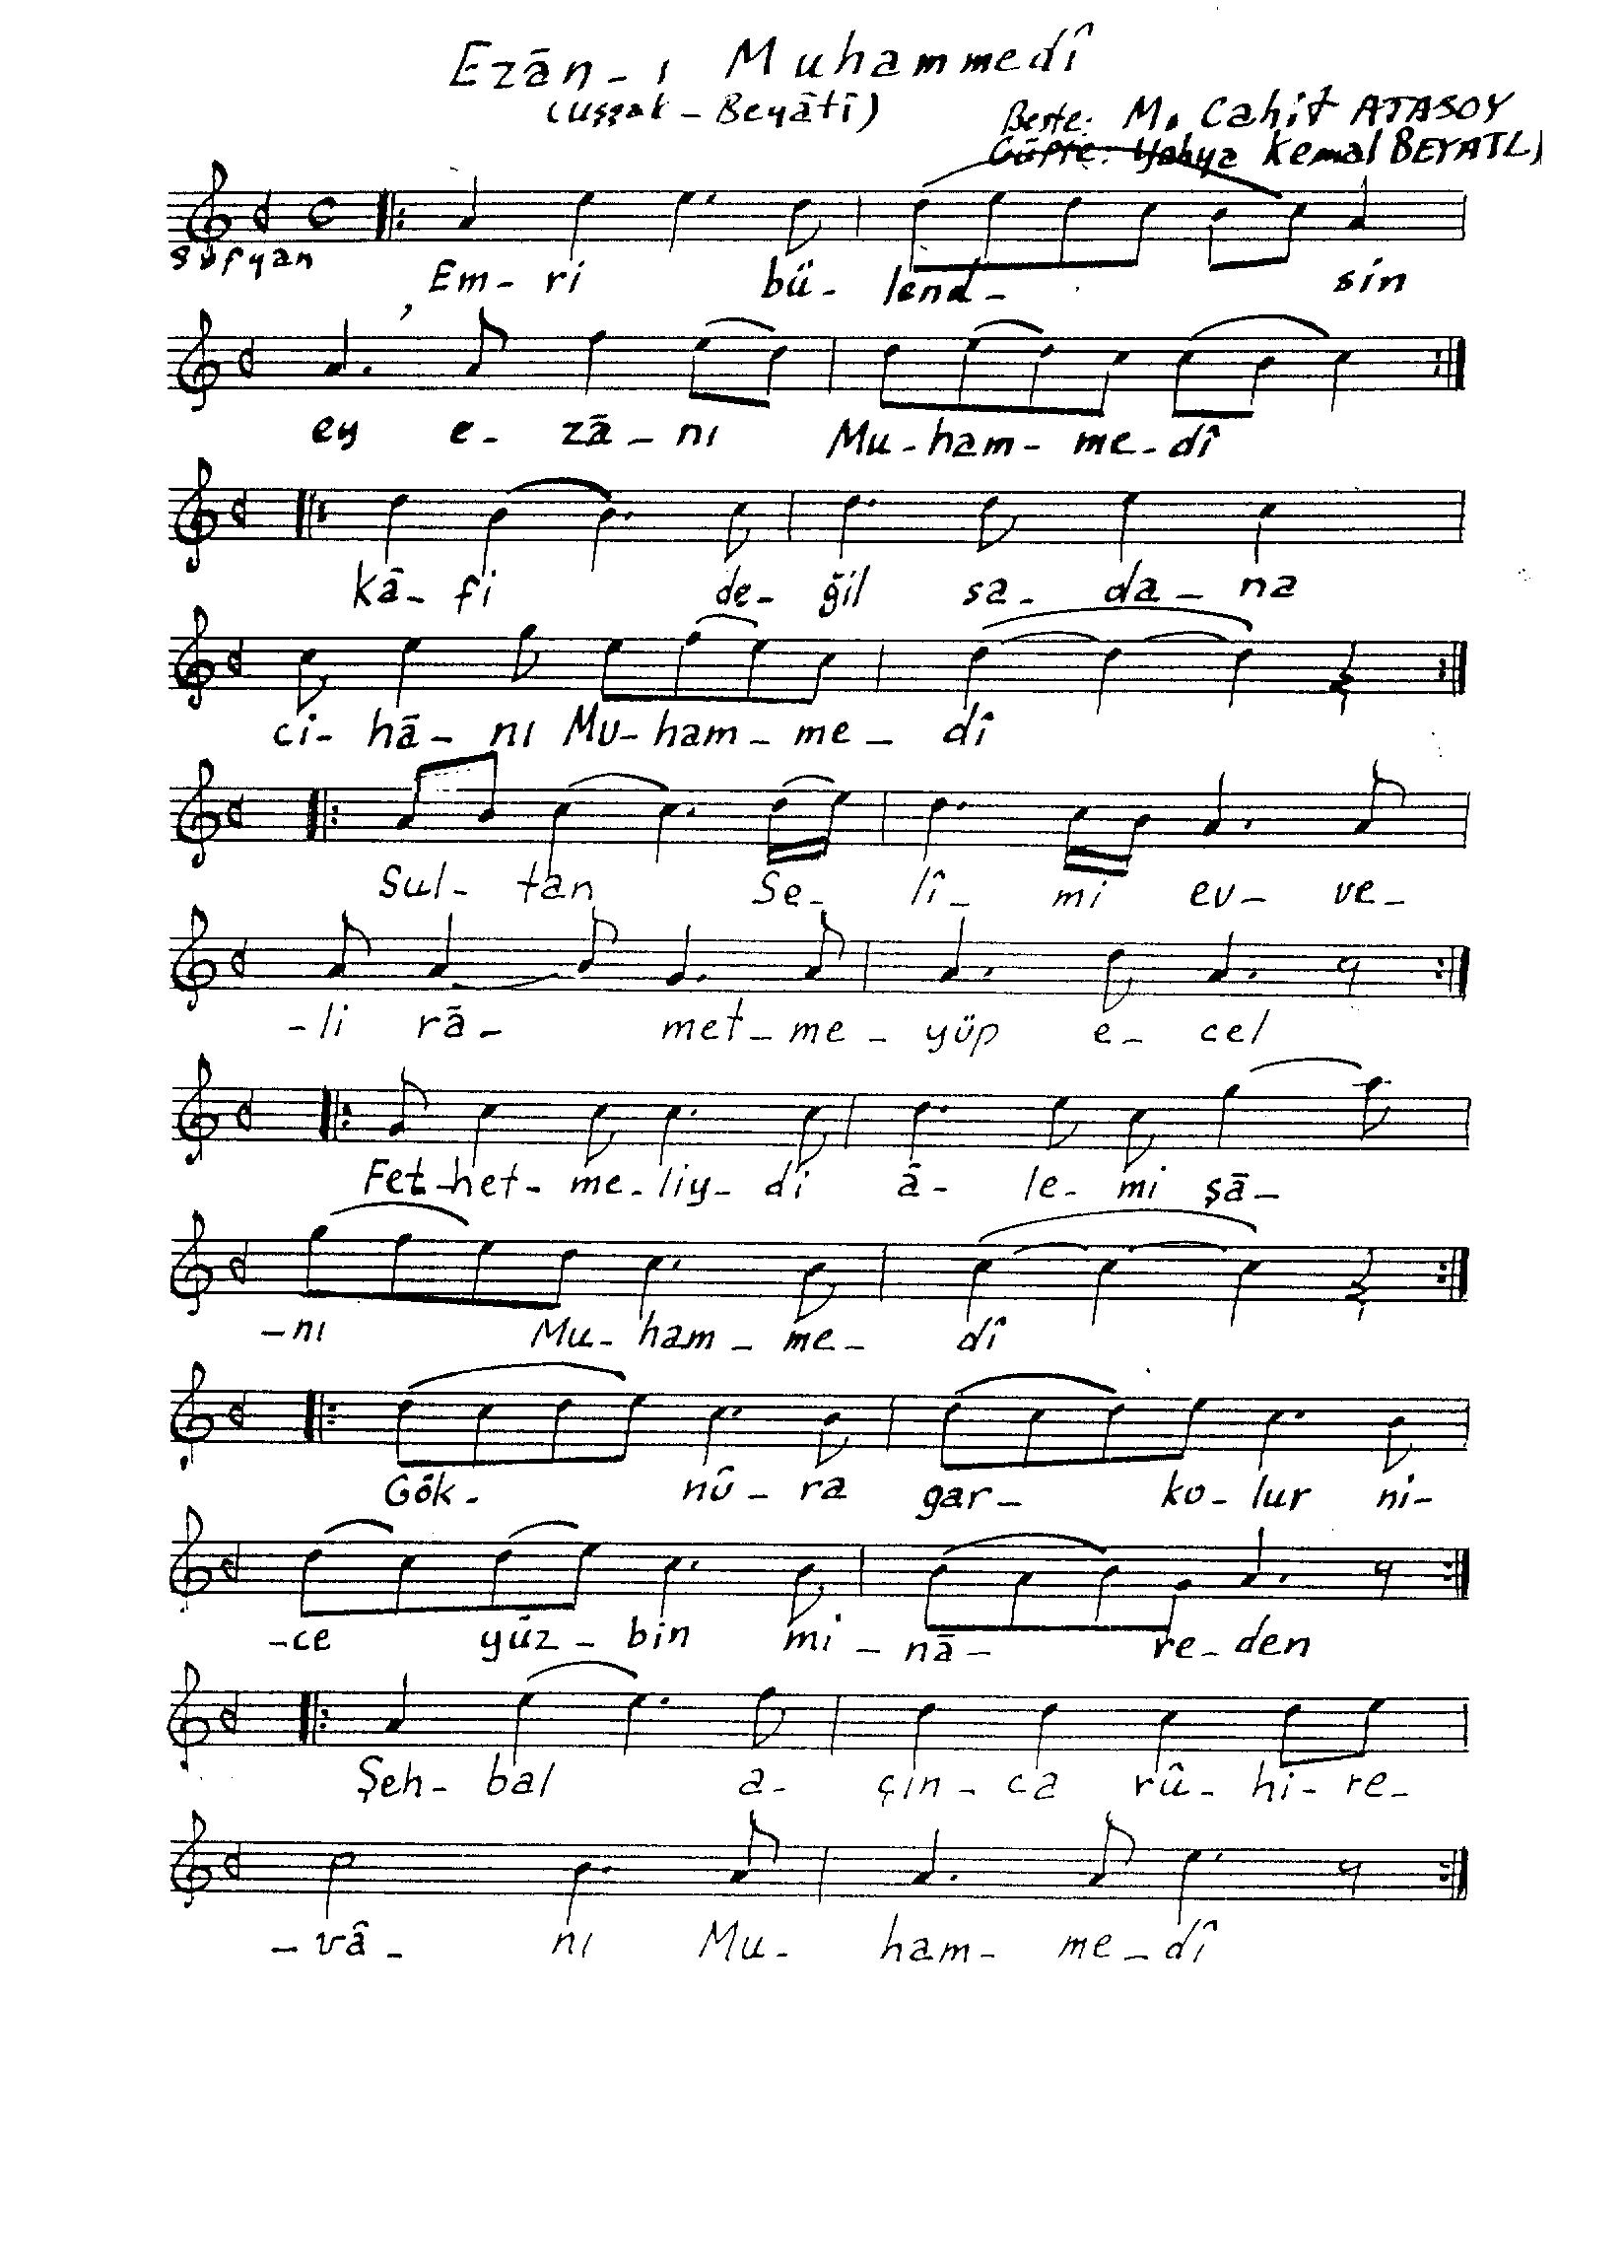 Ezān-ı Muhammedî
(Uşşak-Beyātî)
Beste: M. Cahit ATASOY
Güfte: Yahya Kemal BEYATLI
Sofyan
Em-ri bü-lend- sin
ey e-zā-nı Mu-ham-me-dî
kâ-fi de-ğil sa-da-na
ci-hā-nı Mu-ham-me-dî
Sul-tan Se-lî-mi ev-ve-
-li rā-met-me-yüp e-cel
Fet-het-me-liy-di ā-le-mi şā-
-nı Mu-ham-me-dî
Gök-nû-ra gar-ko-lur ni-
-ce yüz-bin mi-nā-re-den
Şeh-bal a-çın-ca rû-hi-re-
-vâ-nı Mu-ham-me-dî